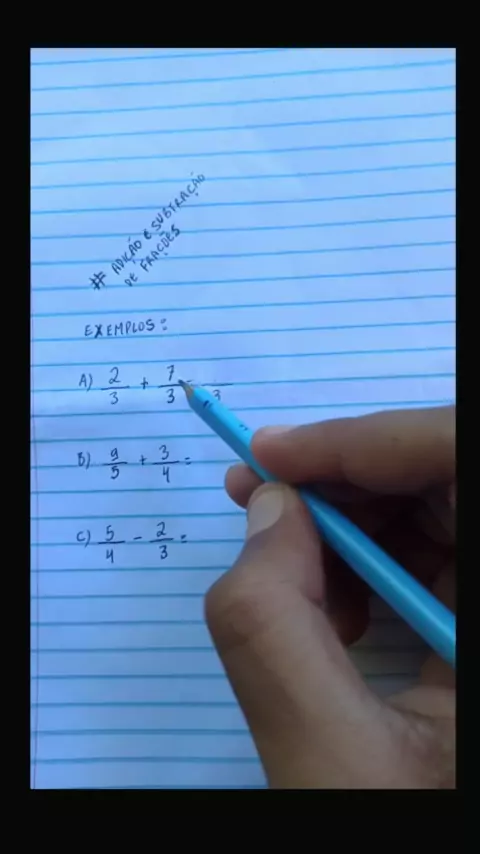 # ADIÇÃO E SUBTRAÇÃO
DE FRAÇÕES
EXEMPLOS:
A) 2/3 + 7/3 = /3
B) 9/5 + 3/4 =
C) 5/4 - 2/3 =